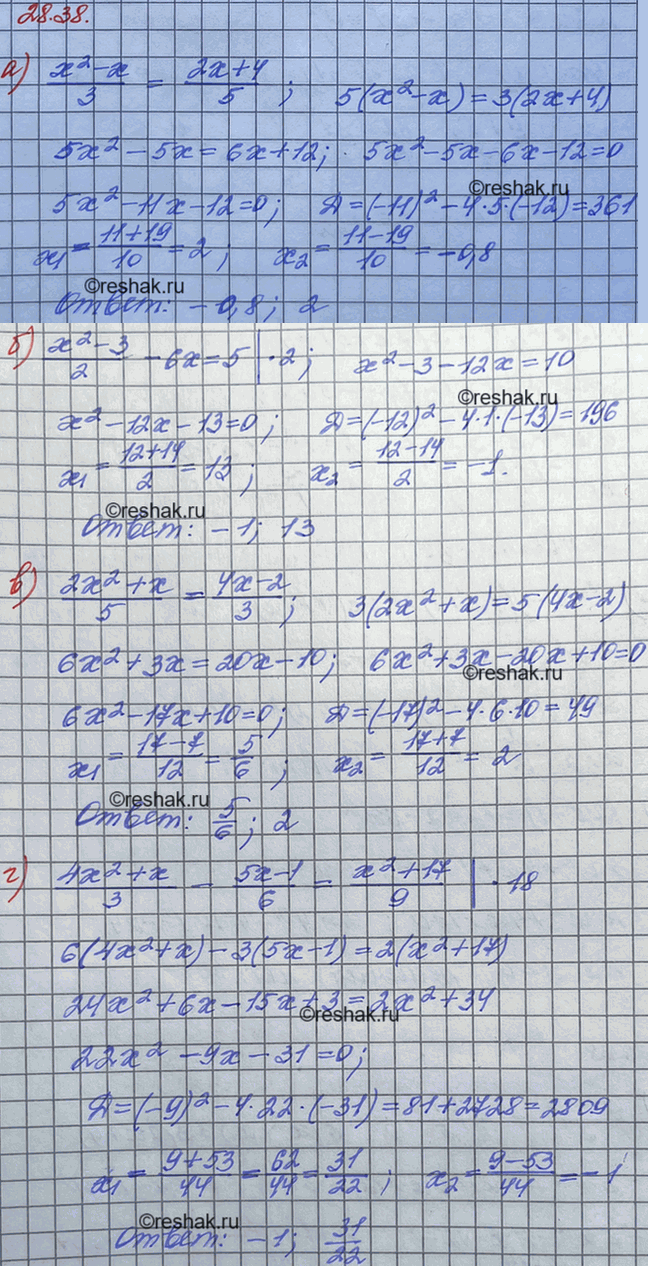 28.38.
а) (x²-x)/3 = (2x+4)/5 ; 5(x²-x)=3(2x+4)
5x²-5x=6x+12; 5x²-5x-6x-12=0
©reshak.ru
5x²-11x-12=0; Д=(-11)²-4·5·(-12)=361
x₁=(11+19)/10=2; x₂=(11-19)/10=-0,8
©reshak.ru
Ответ: -0,8; 2
б) (x²-3)/2 - 6x=5 |·2; x²-3-12x=10
©reshak.ru
x²-12x-13=0; Д=(-12)²-4·1·(-13)=196
x₁=(12+14)/2=13; x₂=(12-14)/2=-1.
©reshak.ru
Ответ: -1; 13
в) (2x²+x)/5 = (4x-2)/3; 3(2x²+x)=5(4x-2)
6x²+3x=20x-10; 6x²+3x-20x+10=0
©reshak.ru
6x²-17x+10=0; Д=(-17)²-4·6·10=49
x₁=(17-7)/12=5/6; x₂=(17+7)/12=2
©reshak.ru
Ответ: 5/6; 2
г) (4x²+x)/3 - (5x-1)/6 = (x²+17)/9 |·18
6(4x²+x)-3(5x-1)=2(x²+17)
24x²+6x-15x+3=2x²+34
©reshak.ru
22x²-9x-31=0;
Д=(-9)²-4·22·(-31)=81+2728=2809
x₁=(9+53)/44=62/44=31/22; x₂=(9-53)/44=-1
©reshak.ru
Ответ: -1; 31/22